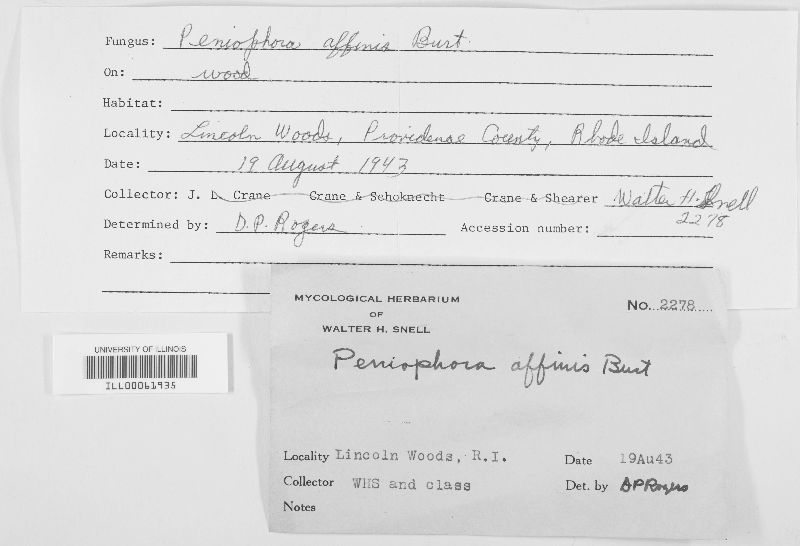 Fungus: Peniophora affinis Burt.
On: wood
Habitat:
Locality: Lincoln Woods, Providence County, Rhode Island
Date: 19 August 1943
Collector: J. L. Crane Crane & Schoknecht Crane & Shearer Walter H. Snell
2278
Determined by: D.P. Rogers Accession number:
Remarks:
MYCOLOGICAL HERBARIUM
OF
WALTER H. SNELL
No. 2278
Peniophora affinis Burt
Locality Lincoln Woods, R.I. Date 19Au43
Collector WHS and class Det. by DPRogers
Notes
UNIVERSITY OF ILLINOIS
ILL00061935